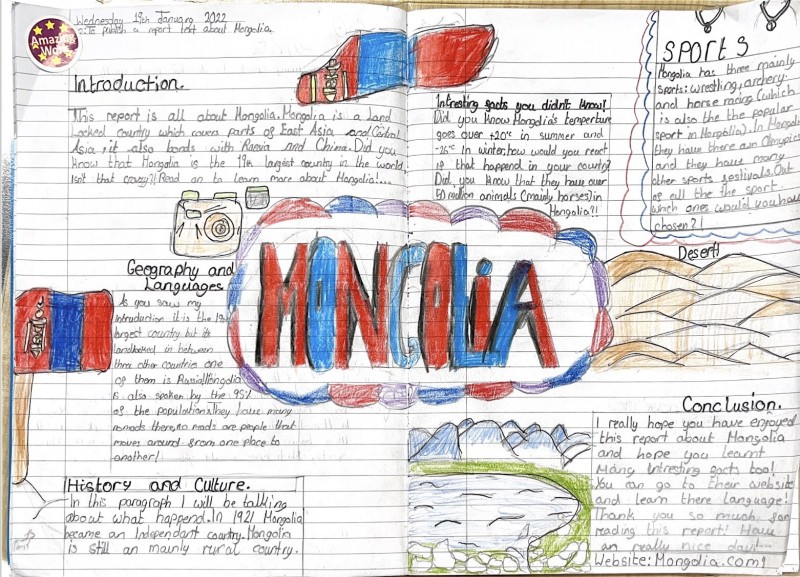 Wednesday 19th January 2022
to publish a report text about Mongolia.
Amazing
Work
Introduction.
This report is all about Mongolia. Mongolia is a Land
locked country which covers parts of East Asia and Central
Asia it also bords with Russia and China. Did you
know that Mongolia is the 19th largest country in the world,
Isn't that crazy?! Read on to learn more about Mongolia...
Geography and
Languages
As you saw my
introduction it is the 19th
largest country but its
landlocked in between
other countries one
of them is Russia! Mongolia
is also spoken by the 95%
of the population. They have many
nomads are people that
moves around from one place to
another!
History and Culture.
In this paragraph I will be talking
about what happend. In 1921 Mongolia
became an Independant country. Mongolia
is still an mainly rural country.
MONGOLIA
Intresting facts you didn't know!
Did you know Mongolia's temperture
goes over +20°c in summer and
-26°c in winter, how would you react
if that happend in your country?
Did you know that they have over
50 million animals (mainly horses) in
Mongolia?!
SPORTS
Mongolia has three mainly
sports: wrestling, archery
and horse racing (which
is also the the popular
sport in Mongolia). In Mongolia
they have there own Olympics
and they have many
other sports festivals. Out
of all the the sport
which ones would you have
chosen?!
Desert!
Conclusion.
I really hope you have enjoyed
this report about Mongolia
and hope you learnt
Many intresting facts too!
You can go to their website
and learn there language!
Thank you so much for
reading this report! Have
an really nice day!...
Website: Mongolia.com!